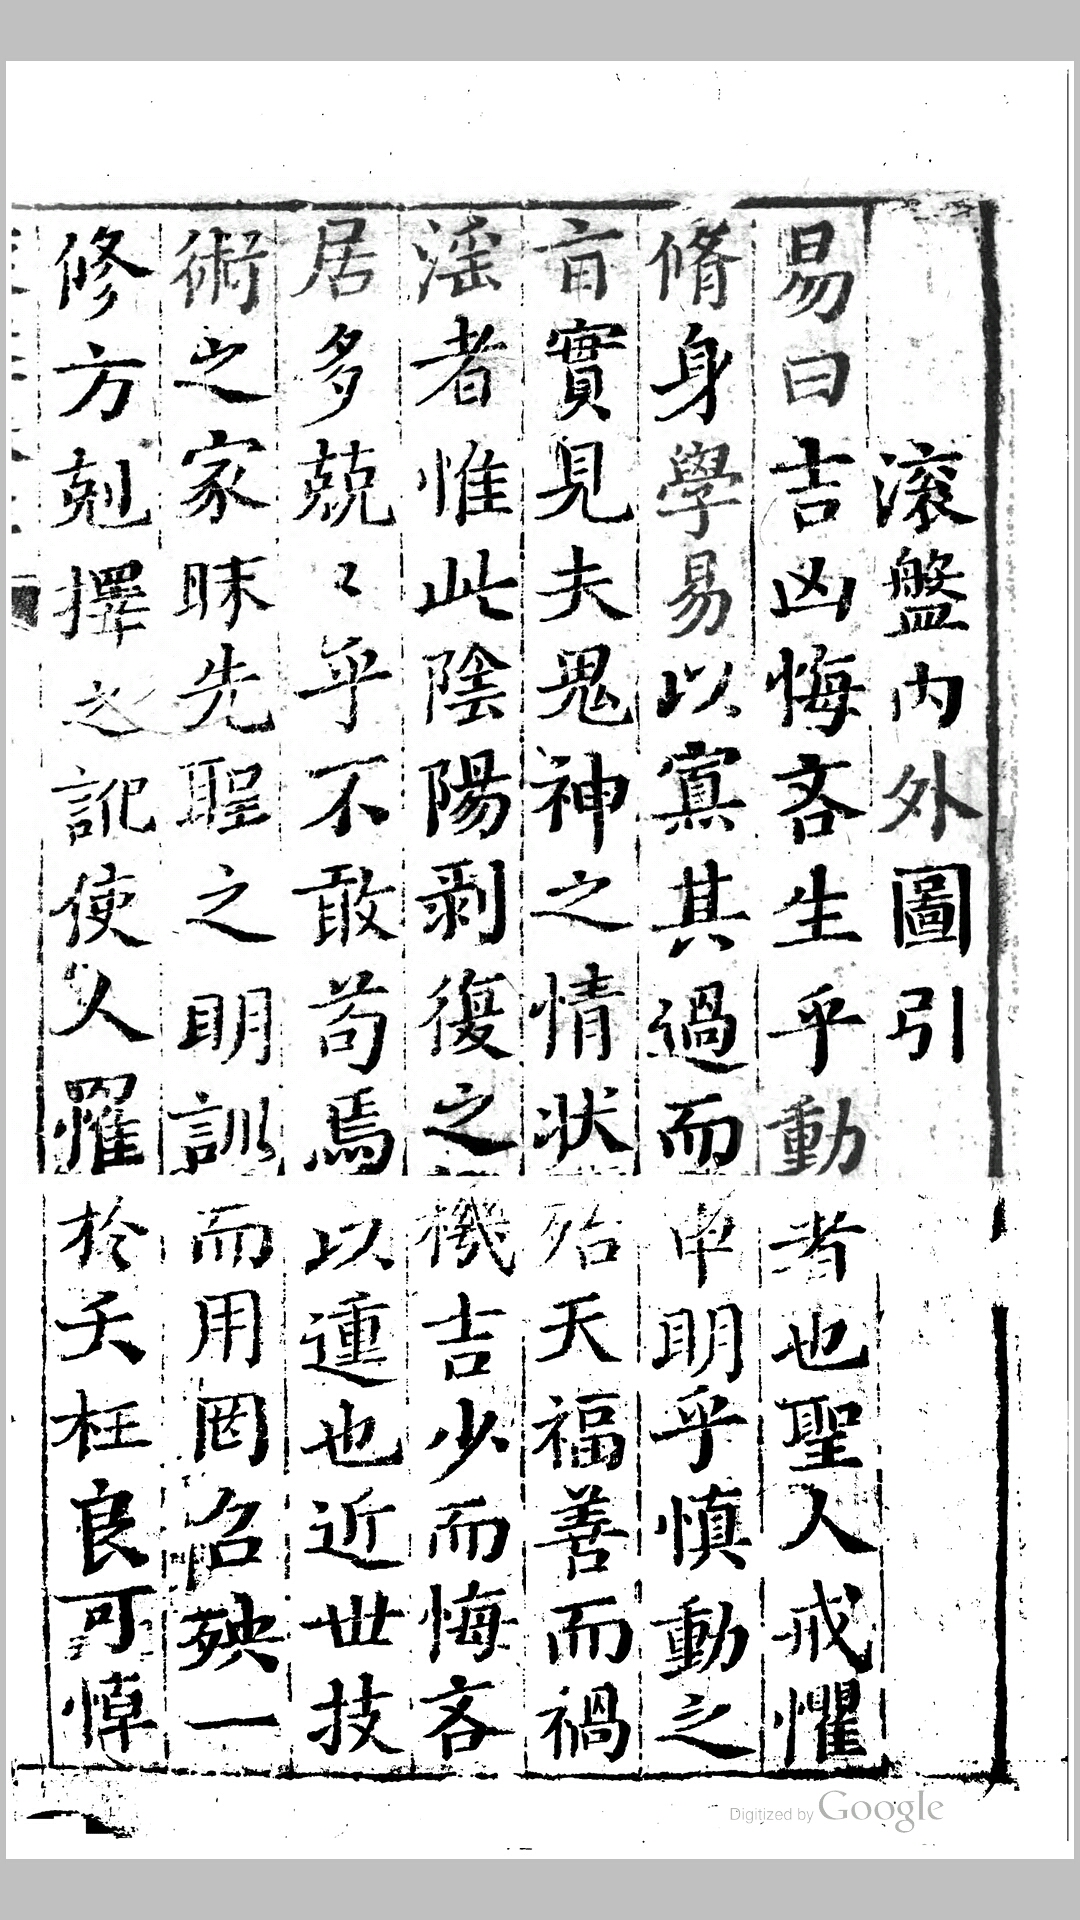 滚盤内外圖引
易曰吉凶悔吝生乎動者也聖人戒懼
脩身學易以寡其過而申明乎慎動之
旨實見夫鬼神之情状殆天福善而禍
滛者惟此陰陽剥復之機吉少而悔吝
居多兢〻乎不敢苟焉以運也近世技
術之家昧先聖之明訓而用罔召殃一
修方剋擇之訛使人罹於夭枉良可悼
Digitized by Google